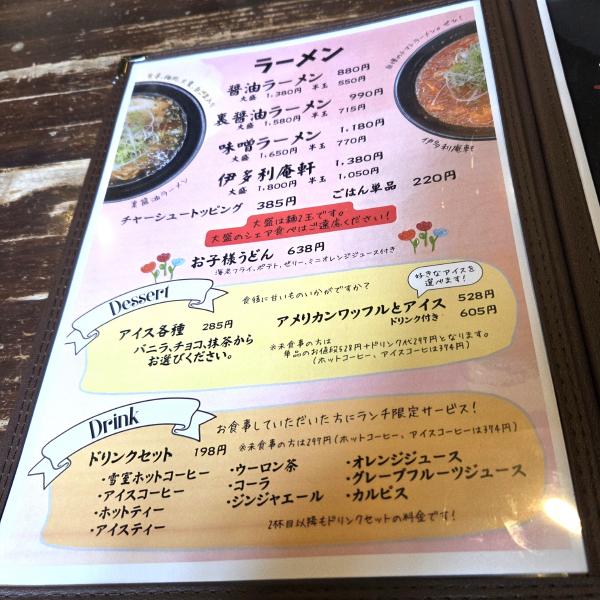 ラーメン
醤油ラーメン 880円
大盛 1,380円 半玉 550円
裏醤油ラーメン 990円
大盛 1,580円 半玉 715円
味噌ラーメン 1,180円
大盛 1,650円 半玉 770円
伊多利庵軒 1,380円
大盛 1,800円 半玉 1,050円
チャーシュートッピング 385円 ごはん単品 220円
裏醤油ラーメン
伊多利庵軒
大盛は麺2玉です。
大盛のシェア食べはご遠慮ください!
お子様うどん 638円
海老フライ、ポテト、ゼリー、ミニオレンジジュース付き
Dessert
食後に甘いものいかがですか?
好きなアイスを
選べます!
アイス各種 285円
バニラ、チョコ、抹茶から
お選びください。
アメリカンワッフルとアイス 528円
ドリンク付き 605円
※未食事の方は
単品のお値段528円+ドリンク代297円となります。
(ホットコーヒー、アイスコーヒは374円)
Drink
お食事していただいた方にランチ限定サービス!
ドリンクセット 198円
※未食事の方は297円(ホットコーヒー、アイスコーヒーは374円)
・雪室ホットコーヒー
・アイスコーヒー
・ホットティー
・アイスティー
・ウーロン茶
・コーラ
・ジンジャエール
・オレンジジュース
・グレープフルーツジュース
・カルピス
2杯目以降もドリンクセットの料金です!